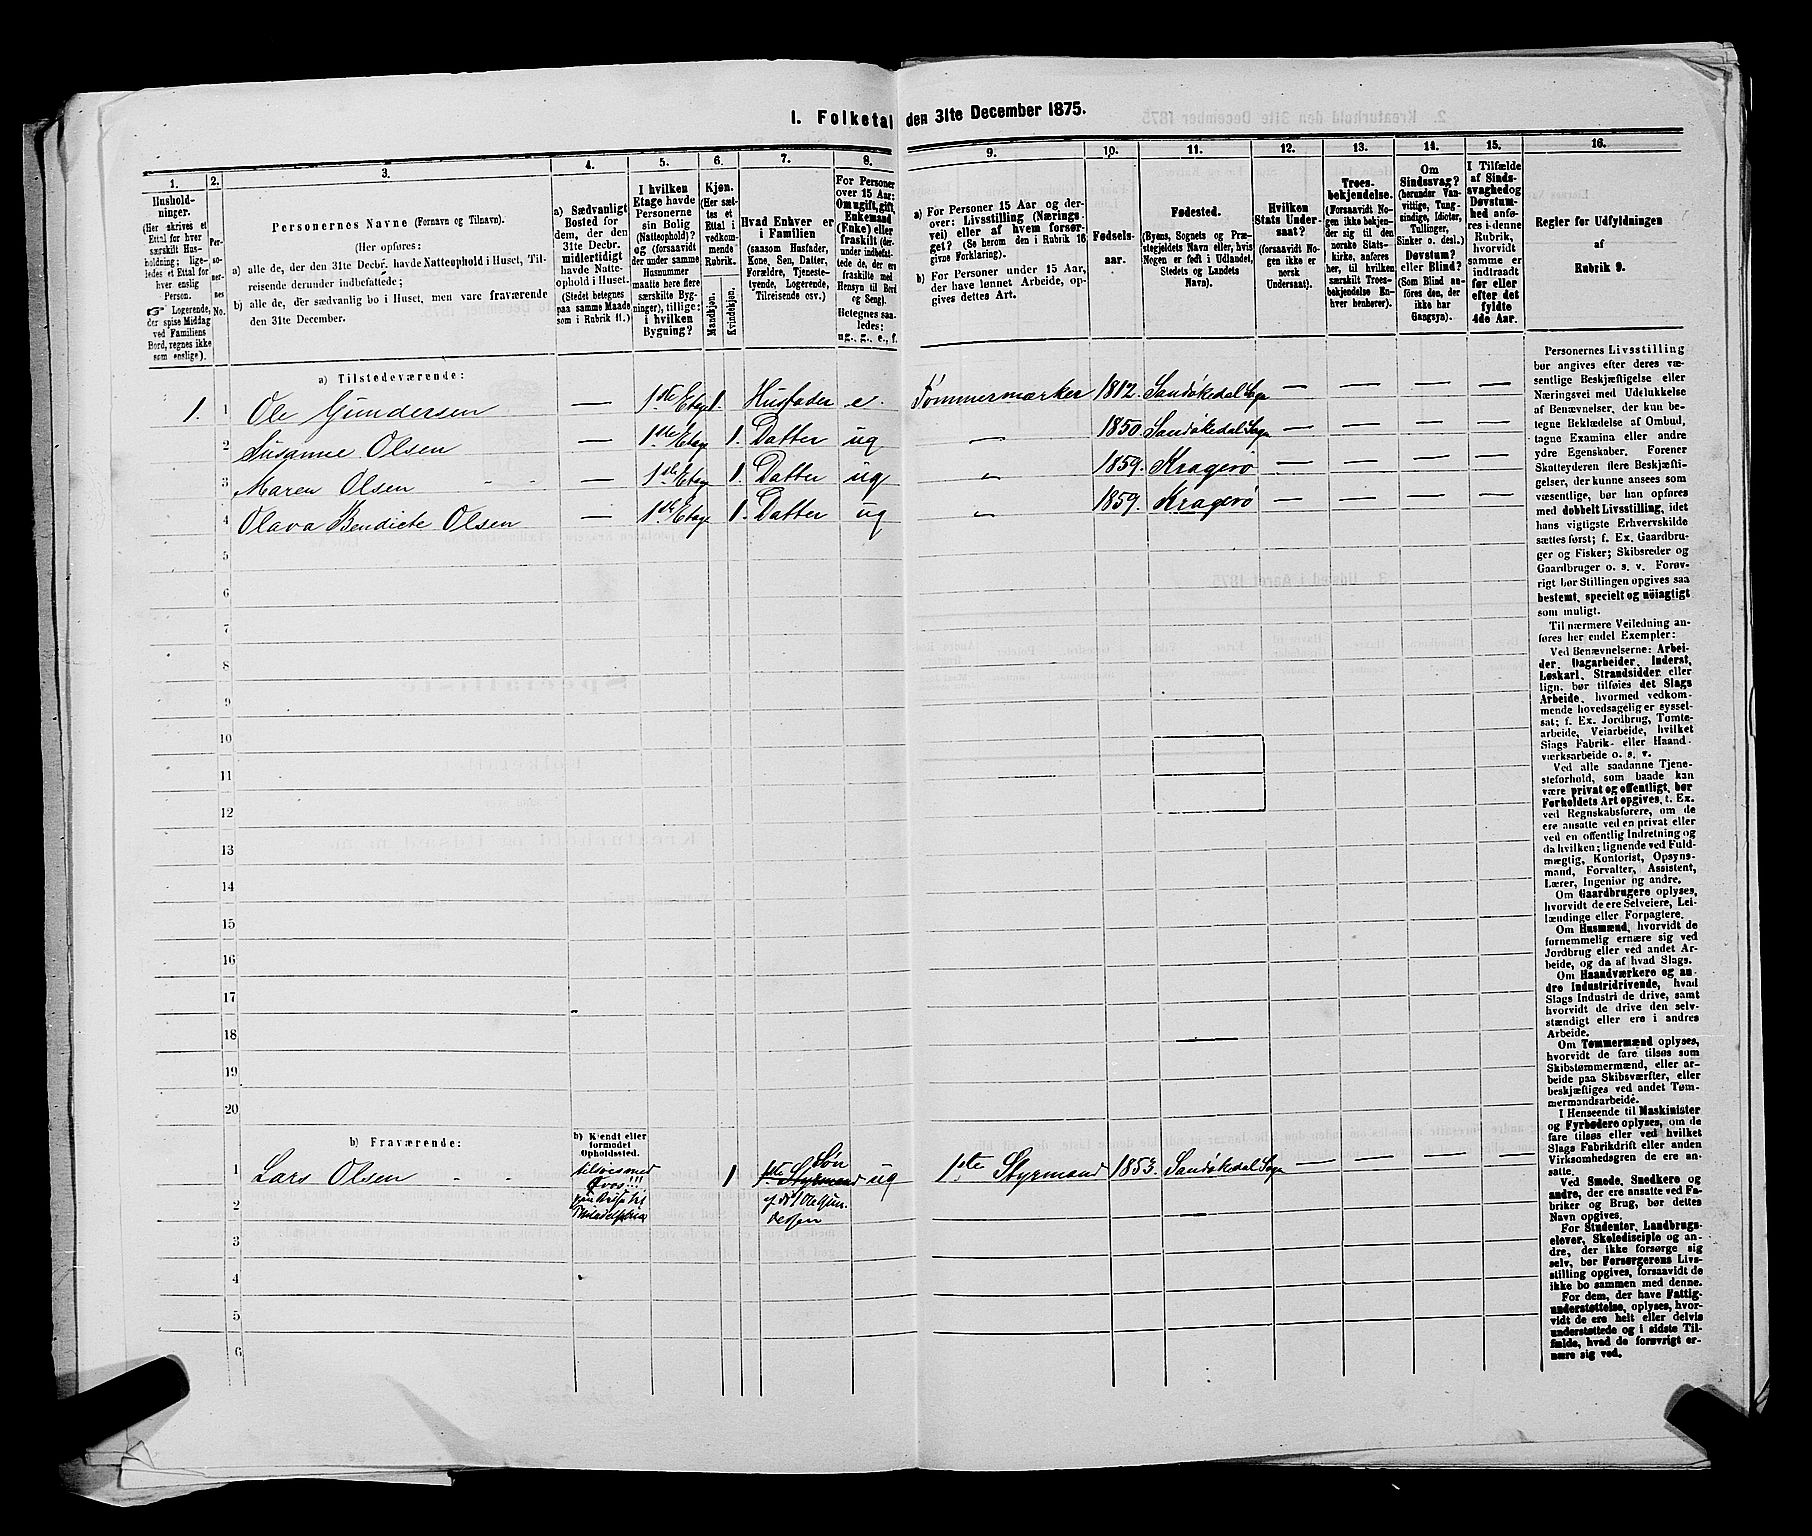 1. Folketal den 31te December 1875.
1.
Husholdninger.
(Her skrives et
Ettal for hver
særskilt Husholdning;
ligeledes et Ettal for
hver enslig
Person.
☞ Logerende,
der spise Middag
ved Familiens
Bord, regnes ikke
som enslige).
2.
Personernes
No.
3.
Personernes Navne (Fornavn og Tilnavn).
(Her opføres:
a) alle de, der den 31te Decbr. havde Natteophold i Huset, Tilreisende derunder indbefattede;
b) alle de, der sædvanlig bo i Huset, men vare fraværende
den 31te December.
4.
a) Sædvanligt
Bosted for
dem, der den
31te Decbr.
midlertidigt
havde Natteophold i Huset.
(Stedet betegnes
paa samme Maade
som i Rubrik 11.)
5.
I hvilken
Etage havde
Personerne
sin Bolig
(Natteophold)?
(forsaavidt
der under samme
Husnummer
maatte høre flere
særskilte Bygninger), tillige:
i hvilken
Bygning?
6.
Kjøn.
(Her sættes et
Ettal i
vedkommende
Rubrik.
Mandkjøn.
Kvindekjøn.
7.
Hvad Enhver er
i Familien
(saasom Husfader,
Kone, Søn, Datter,
Forældre, Tjenestetyende, Logerende,
Tilreisende osv.)
8.
For Personer
over 15 Aar:
Om ugift, gift,
Enkemand
(Enke) eller
fraskilt (derunder indbefattede de, der ere
fraskilte med
Hensyn til Bord
og Seng).
Betegnes saaledes:
ug., g., e., f.
9.
a) For Personer 15 Aar og derover: Livsstilling (Næringsvei) eller af hvem forsørget? (Se herom den i Rubrik 16
givne Forklaring).
b) For Personer under 15 Aar,
der have lønnet Arbeide, opgives dettes Art.
10.
Fødselsaar.
11.
Fødested.
(Byens, Sognets og Præstegjeldets Navn eller, hvis
Nogen er født i Udlandet,
Stedets og Landets
Navn).
12.
Hvilken
Stats Undersaat?
(forsaavidt Nogen ikke er
norsk
Undersaat).
13.
Troesbekjendelse.
(Forsaavidt Nogen ikke bekjender sig til den
norske Statskirke, anføres
her, til hvilken
særskilt Troesbekjendelse Enhver henhører).
14.
Om
Sindssvag?
(herunder Vanvittige, Tungsindige, Idioter,
Tullinger,
Sinker o. desl.)
Døvstum?
eller Blind?
(Som Blind anføres den, der
ikke har
Gangsyn).
15.
I Tilfælde
af Sindssvaghed og
Døvstumhed anføres i denne
Rubrik,
hvorvidt
samme er
indtraadt
før eller
efter det
fyldte
4de Aar.
16.
Regler for Udfyldningen
af
Rubrik 9.
a) Tilstedeværende:
1. 1 Ole Gundersen — 1ste Etage 1. Husfader e. Tømmermærker 1812. Sandøkedal Sogn — — — —
2 Susanne Olsen — 1ste Etage 1. Datter ug „ 1850. Sandøkedal Sogn — — — —
3 Maren Olsen „ „ — 1ste Etage 1. Datter ug „ 1859. Kragerø — — — —
4 Olava Bendicte Olsen — 1ste Etage 1. Datter ug „ 1859. Kragerø — — — —
5
6
7
8
9
10
11
12
13
14
15
16
17
18
19
20
b) Fraværende:
b) Kjendt eller
formodet
Opholdssted.
1 Lars Olsen „ „ 1 1ste Styrmand Søn ug 1ste Styrmand 1853. Sandøkedal Sogn — — — —
Philadelphia
2
3
4
5
6
Personernes Livsstilling
bør angives efter deres væsentlige Beskjæftigelse eller
Næringsvei med Udelukkelse
af Benævnelser, der kun betegne Beklædelse af Ombud,
tagne Examina eller andre
ydre Egenskaber. Forener
Skatteyderen flere Beskjæftigelser, der kunne ansees som
væsentlige, bør han opføres
med dobbelt Livsstilling, idet
hans vigtigste Erhvervskilde
sættes først; f. Ex. Gaardbruger og Fisker; Skibsreder og
Gaardbruger o. s. v. Forøvrigt bør Stillingen opgives saa
bestemt, specielt og nöiagtigt
som muligt.
Til nærmere Veiledning anføres her endel Exempler:
Ved Benævnelserne: Arbeider, Dagarbeider, Inderst,
Løskarl, Strandsidder eller
lign. bør tilføies det Slags
Arbeide, hvormed vedkommende hovedsagelig er sysselsat; f. Ex. Jordbrug, Tømtearbeide, Veiarbeide, hvilket
Slags Fabrik- eller Haandværksarbeide o. s. v.
Ved alle saadanne Tjenesteforhold, som baade kan
være privat og offentligt, bør
Forholdets Art opgives, t. Ex.
ved Regnskabsførere, om de
ere ansatte ved en privat eller
ved en offentlig Indretning og
da hvilken; lignende ved Fuldmægtig, Kontorist, Opsynsmand, Forvalter, Assistent,
Lærer, Ingeniør og andre.
Om Gaardbrugere oplyses,
hvorvidt de ere Selveiere, Leilændinge eller Forpagtere.
Om Husmænd, hvorvidt de
fornemmelig ernære sig ved
Jordbrug eller ved andet Arbeide, og da af hvad Slags.
Om Haandværkere og andre Industridrivende, hvad
Slags Industri de drive, samt
hvorvidt de drive den selvstændigt eller ere i andres
Arbeide.
Om Tømmermænd oplyses,
hvorvidt de fare tilsøs som
Skibstømmermænd, eller arbeide paa Skibsværfter, eller
beskjæftiges ved andet Tømmermandsarbeide.
I Henseende til Maskinister
og Fyrbødere oplyses, om de
fare tilsøs eller ved hvilket
Slags Fabrikdrift eller anden
Virksomhedsgren de ere ansatte.
Ved Smede, Snedkere og
andre, der ere ansatte ved Fabriker og Brug, bør dettes
Navn opgives.
For Studenter, Landbrugselever, Skoledisciple og andre, der ikke forsørge sig
selv, bør Forsørgerens Livsstilling opgives, forsaavidt de
ikke bo sammen med denne.
For dem, der have Fattigunderstøttelse, oplyses, hvorvidt de ere helt eller delvis
understøttede og i sidste Tilfælde, hvad de forøvrigt ernære sig ved.